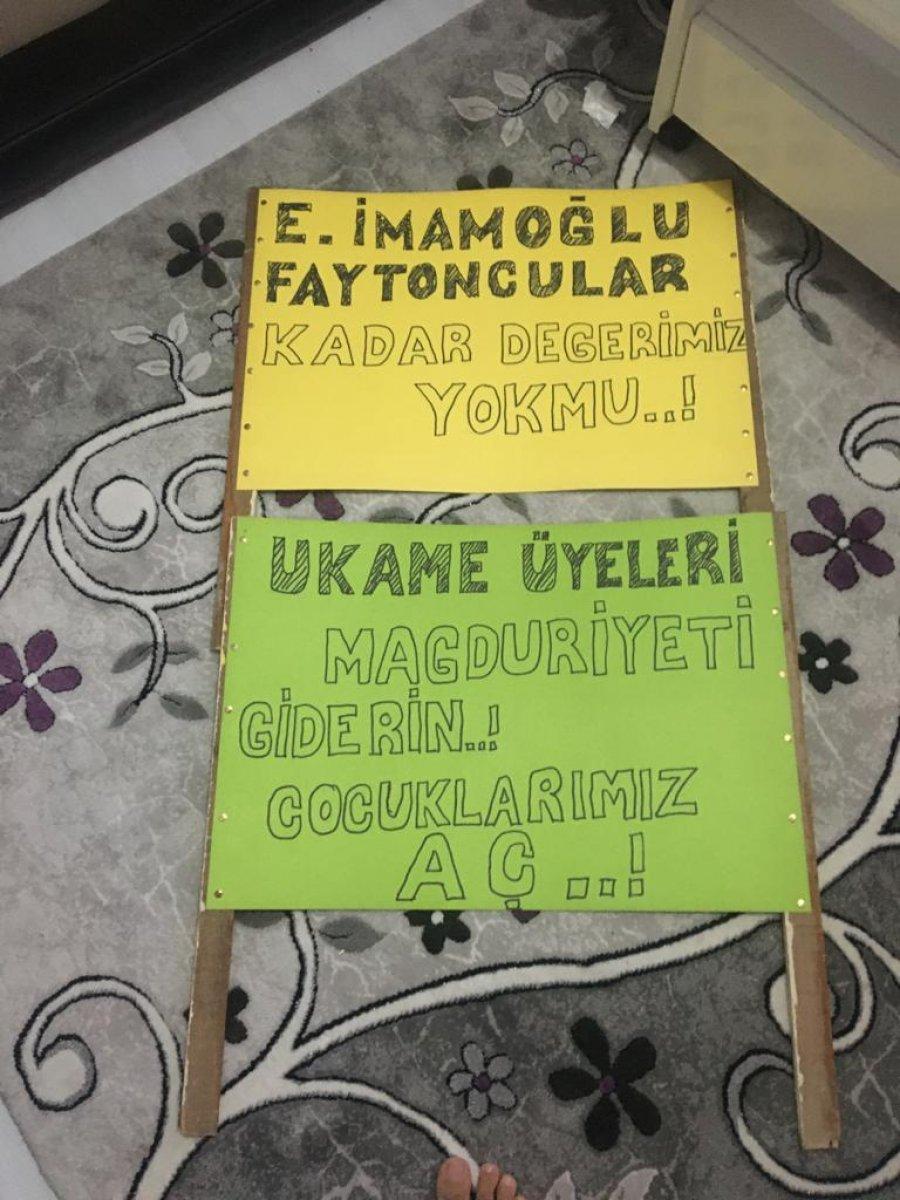 E. İMAMOĞLU
FAYTONCULAR
KADAR DEGERİMİZ
YOKMU..!
UKAME ÜYELERİ
MAGDURİYETİ
GİDERİN..!
COCUKLARIMIZ
AÇ...!